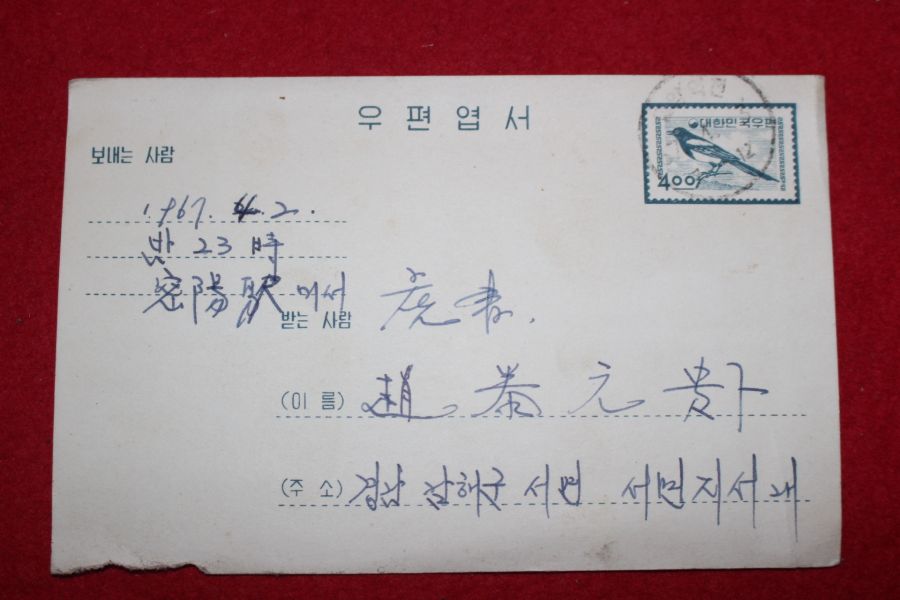 우편엽서
대한민국우편
400
보내는 사람
1967. 4. 2.
밤 23時
密陽駅에서
받는 사람
(이 름) 趙 泰 元 貴下
(주 소) 경남 남해군 서면 서면지서 내